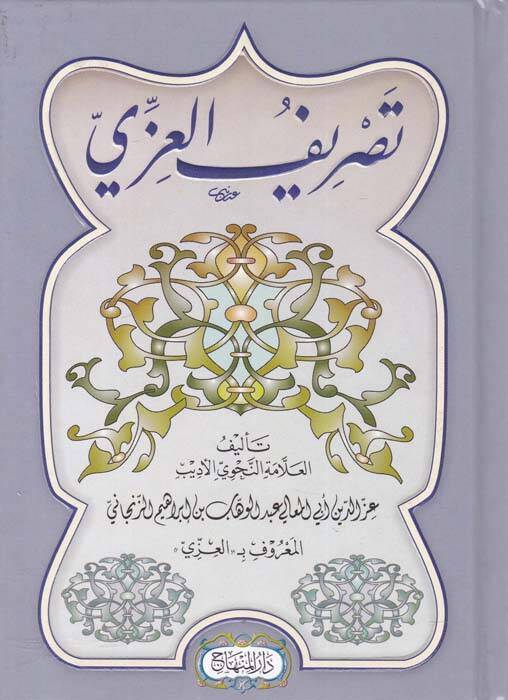 تصْرِيفُ العِزِّيّ
تَأليفُ
العَلّامَةِ النَّحْويِّ الأَدِيبِ
عِزّ الدّين أبي المعالي عبد الوهاب بن إبراهيم الزّنجانيّ
المَعْرُوفِ بـ «العِزّي»
دَارُ المِنْهَاجِ